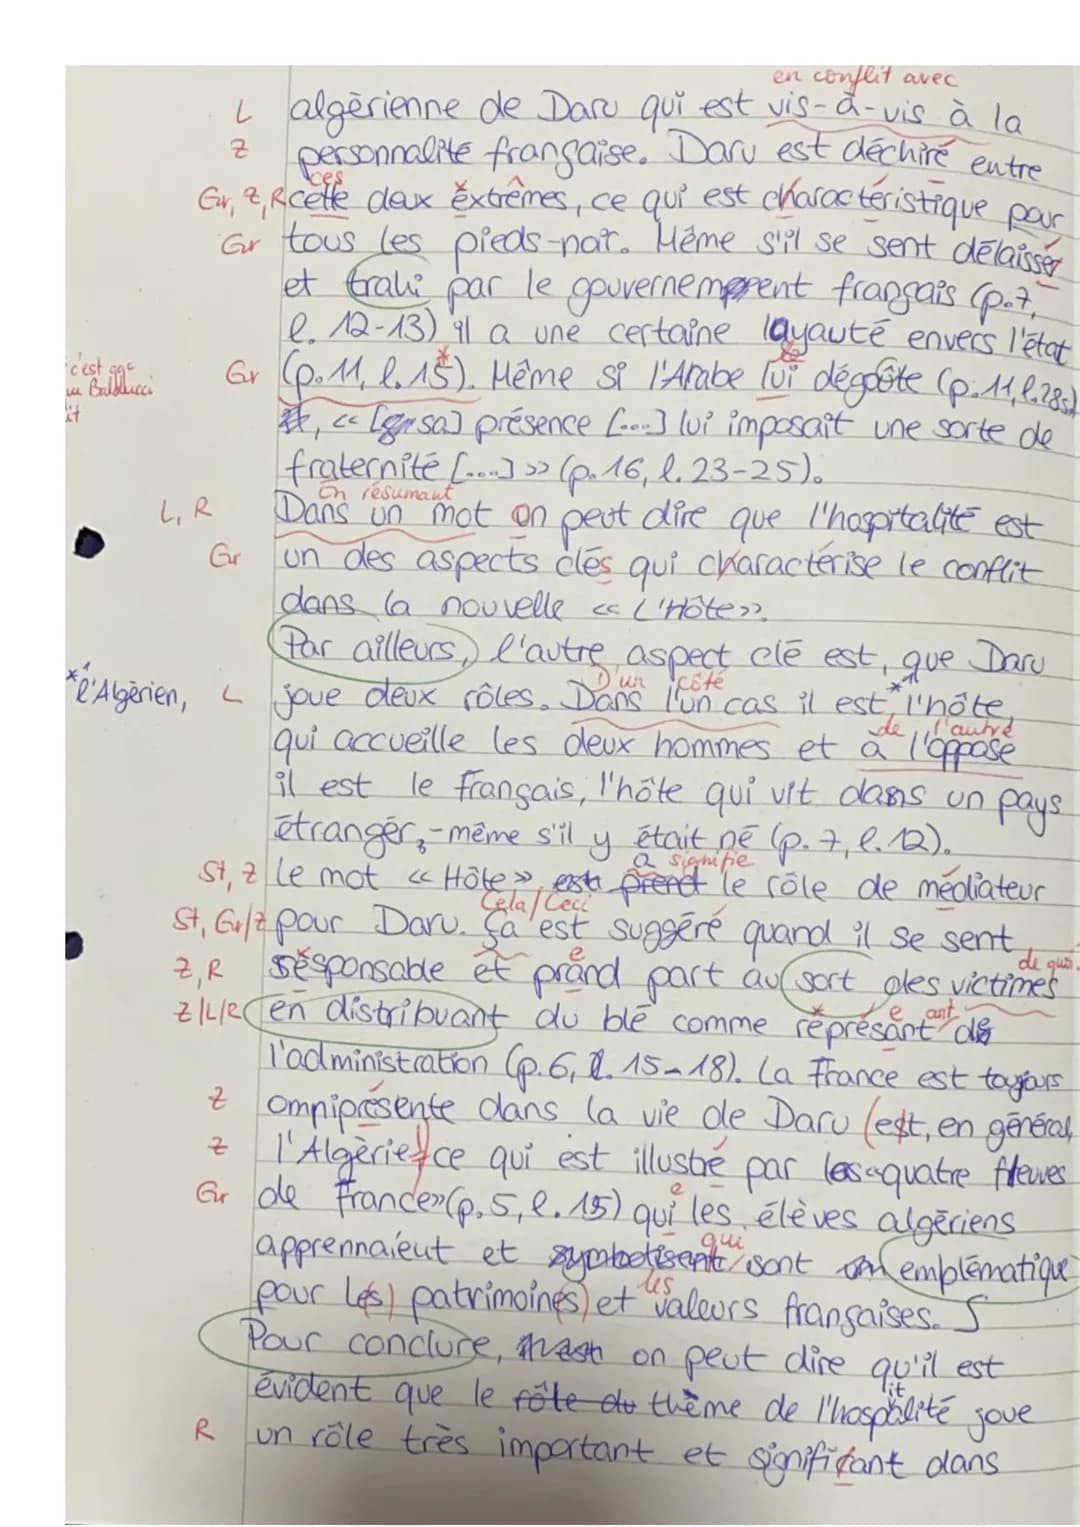 en conflit avec
L algérienne de Daru qui est vis-à-vis à la
Z personnalité française. Daru est déchiré entre
ces
Gr, Z, R cette deux extrêmes, ce qui est charactéristique pour
Gr tous les pieds-noir. Même s'il se sent délaisser
et trahi par le gouvernement français (p.7,
l. 12-13) il a une certaine loyauté envers l'état
c'est qqc
Gr (p.11, l.15). Même si l'Arabe lui dégoûte (p.11, l.28s)
, << [...] présence [...] lui imposait une sorte de
fraternité [...] >> (p.16, l.23-25).
En résumant
L, R Dans un mot on peut dire que l'hospitalité est
Gr un des aspects clés qui charactérise le conflit
dans la nouvelle << L'Hôte>>.
Par ailleurs, l'autre aspect clé est, que Daru
D'un côté
*l'Algérien, L joue deux rôles. Dans l'un cas il est * l'hôte,
de l'autre
qui accueille les deux hommes et à l'oppose
il est le français, l'hôte qui vit dans un pays
étranger,-même s'il y était né (p.7, l.12).
a signifie
St, Z Le mot << Hôte>> est prend le rôle de médiateur
Cela/Ceci
St, Gr/Z pour Daru. Ça est suggéré quand il se sent
e de quoi
Z, R résponsable et prand part au sort des victimes
e ant
Z/L/R en distribuant du blé comme représant de
l'administration (p.6, l.15-18). La France est toujours
Z omniprésente dans la vie de Daru (est, en général,
Z l'Algérie) ce qui est illustré par les <<quatre fleuves
e
Gr de France>> (p.5, l.15) qui les élèves algériens
qui
apprennaient et symbolisent sont emblématique
les
pour les patrimoines et valeurs françaises.
Pour conclure, on peut dire qu'il est
it
évident que le rôle du thème de l'hospalité joue
R un rôle très important et significant dans